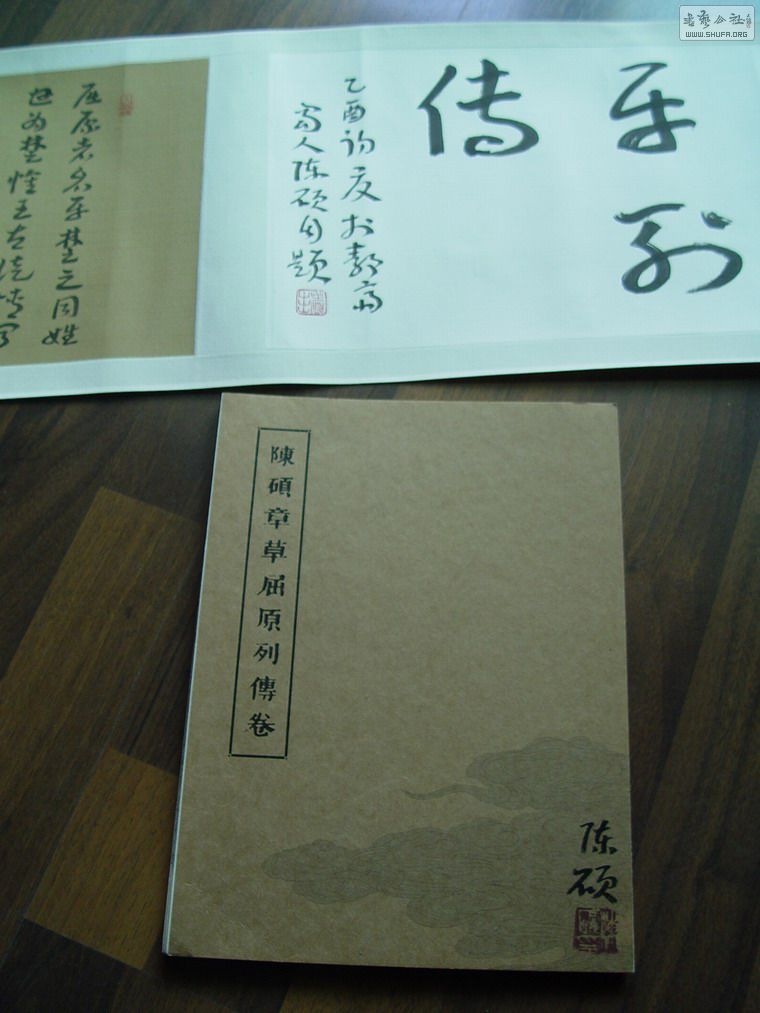 書藝公社
WWW.SHUFA.ORG
平列
传
乙酉初夏於
人陈硕自题
屈原者名平楚之同姓
也为楚懷王左徒博闻
陳碩章草屈原列傳卷
陈硕